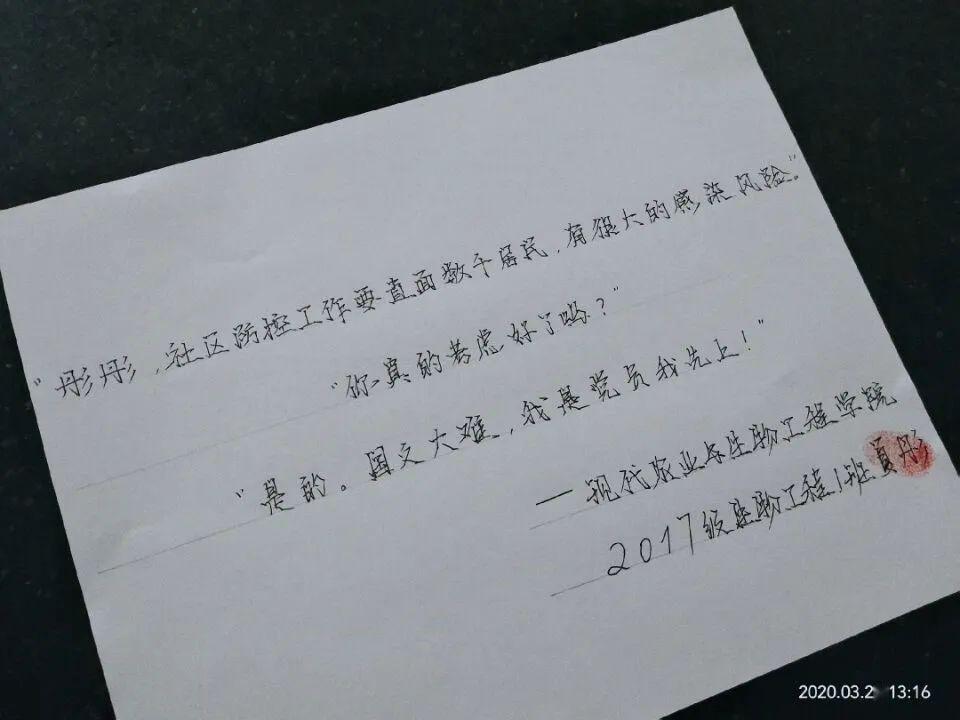 “彤彤，社区防控工作要直面数千居民，有很大的感染风险。”
“你真的考虑好了吗？”
“是的。国之大难，我是党员我先上！”
—现代农业与生物工程学院
2017级生物工程1班员彤
2020.03.2 13:16